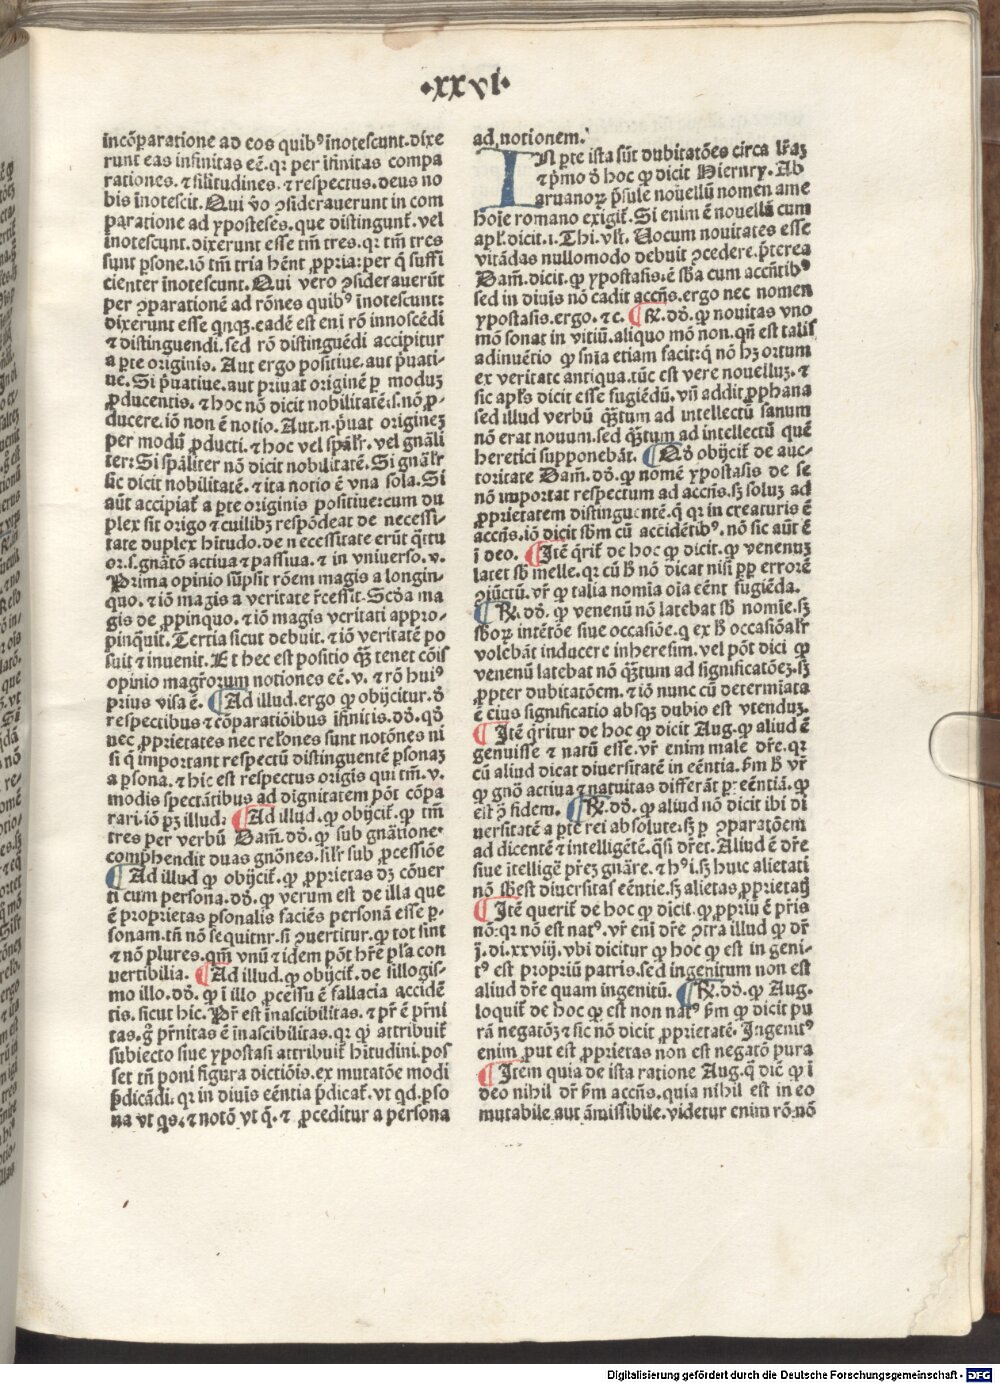 .xxvi.
incõparatione ad eos quibꝰ ĩnotescunt.dixe
runt eas infinitas eẽ.qꝛ per ĩfinitas compa
rationes.⁊ silĩtudines.⁊ respectus.deus no
bis ĩnotescit.Qui v̉o ꝯsiderauerunt in com
paratione ad yposteses.que distingunt̃.vel
ĩnotescunt.dixerunt esse tm̃ tres.qꝛ tm̃ tres
sunt ꝑsone.iõ tm̃ tria hẽnt ꝓpria:per q̃ suffi
cienter ĩnotescunt.Qui vero ꝯsiderauerũt
per ꝯparationẽ ad rõnes quibꝰ ĩnotescunt:
dixerunt esse qnqꝫ.eadẽ est eni rõ innoscẽdi
⁊ distinguendi.sed rõ distinguẽdi accipitur
a ꝑte originis.Aut ergo positiue.aut p̃uati-
ue.Si p̃uatiue.aut priuat originẽ ꝑ moduꝫ
ꝓducentis.⁊ hoc nõ dicit nobilitatẽ.s.nõ ꝓ-
ducere.iõ non ẽ notio.Aut.n.p̃uat origineꝫ
per modũ ꝓducti.⁊ hoc vel spãlr̃.vel gnãli
ter:Si spãliter nõ dicit nobilitatẽ.Si gnãlr̃
sic dicit nobilitatẽ.⁊ ita notio ẽ vna sola.Si
aũt accipiat̃ a ꝑte originis positiue:cum du
plex sit origo ⁊ cuilibꝫ respõdeat de necessi-
tate duplex hĩtudo.de necessitate erũt q̃ttu
or.s.gnãtõ actiua ⁊ passiua.⁊ in vniuerso.v.
Prima opinio sũpsit rõem magis a longin-
quo.⁊ iõ magis a veritate r̃cessit.Scđa ma
gis de ꝓpinquo.⁊ iõ magis veritati appro-
pinq̃uit.Tertia sicut debuit.⁊ iõ veritatẽ po
suit ⁊ inuenit.Et hec est positio q̃ꝫ tenet cõis
opinio magr̃orum notiones eẽ.v.⁊ rõ huiꝰ
prius visa ẽ. ¶Ad illud.ergo ꝙ obijcitur.đ
respectibus ⁊ cõparatiõibus ĩfinitis.dđ.qđ
nec ꝓprietates nec rel̃ones sunt notõnes ni
si q̃ important respectũ distinguentẽ ꝑsonaꝫ
a ꝑsona.⁊ hic est respectus origis qui tm̃.v.
modis spectãtibus ad dignitatem põt cõpa
rari.iõ pꝫ illud. ¶Ad illud.ꝙ obijcit̃.ꝙ tm̃
tres per verbũ Dam̃.dđ.ꝙ sub gnãtione
comp̃hendit duas gnõnes.silr̃ sub ꝓcessiõe
¶Ad illud ꝙ obijcit̃.ꝙ ꝓprietas dꝫ cõuer
ti cum persona.dđ.ꝙ verum est de illa que
ẽ proprietas ꝑsonalis faciẽs personã esse ꝑ-
sonam.tñ nõ sequitnr.si ꝯuertitur.ꝙ tot sint
⁊ nõ plures.qm̃ vnũ ⁊ idem põt hr̃e pl̃a con
uertibilia. ¶Ad illud.ꝙ obijcit̃.de sillogis-
mo illo.dđ.ꝙ ĩ illo ꝓcessu ẽ fallacia accidẽ
tis.sicut hic.Pr̃ est ĩnascibilitas.⁊ pr̃ ẽ pr̃ni
tas.g̊ pr̃nitas ẽ ĩnascibilitas.qꝛ qi attribuit̃
subiecto siue ypostasi attribuit̃ hĩtudini.pos
set tñ poni figura dictiõis.ex mutatõe modi
p̃dicãdi.qꝛ in diuis eẽntia p̃dicat̃.vt qd.ꝑso
na vt qs.⁊ notõ vt q̃.⁊ ꝓceditur a persona
ad notionem.
IN ꝑte ista sũt dubitatões circa lr̃aꝫ
⁊ p̃mo đ hoc ꝙ dicit Hierny.Ab
arrianoꝝ p̃sule nouellũ nomen ame
hoĩe romano exigit̃.Si enim ẽ nouellũ cum
apl̃.dicit.i.Thi.vlt̃.Uocum nouitates esse
vitãdas nullomodo debuit ꝓcedere.p̃terea
Dam̃.dicit.ꝙ ypostasis.ẽ sb̃a cum accñtibꝰ
sed in diuis nõ cadit accñs.ergo nec nomen
ypostasis.ergo.⁊c. ¶R̃.dđ.ꝙ nouitas vno
mõ sonat in vitiũ.aliquo mõ non.qñ est talis
adinuẽtio ꝙ sñia etiam facit:q̃ nõ hꝫ ortum
ex veritate antiqua.tũc est vere nouelluꝫ.⁊
sic apl̃s dicit esse fugiẽdũ.vñ addit ꝓphana
sed illud verbũ q̃ꝫtum ad intellectũ sanum
nõ erat nouum.sed q̃ꝫtum ad intellectũ quẽ
heretici supponebãt. ¶Qđ obijcit̃ de auc-
toritate Dam̃.dđ.ꝙ nomẽ ypostasis de se
nõ importat respectum ad accñs.sꝫ soluꝫ ad
ꝓprietatem distinguentẽ.q̃ qꝛ in creaturis ẽ
accñs.iõ dicit sb̃m cũ accidẽtibꝰ.nõ sic aũt ẽ
ĩ deo. ¶Itẽ q̃rit̃ de hoc ꝙ dicit.ꝙ venenuꝫ
latet sb̃ melle.qꝛ cũ h̃ nõ dicat nisi ꝓꝑ errorẽ
ꝯiũctũ.vr̃ ꝙ talia nomĩa oĩa eẽnt fugiẽda.
¶R̃.dđ.ꝙ venenũ nõ latebat sb̃ nomĩe.sꝫ
sb̃oꝝ intẽtõe siue occasiõe.q ex h̃ occasiõalr̃
volebãt inducere inheresim.vel põt dici ꝙ
venenũ latebat nõ q̃ꝫtum ad significatõeꝫ.sꝫ
ꝓpter dubitatõem.⁊ iõ nunc cũ determĩata
ẽ eius significatio absqꝫ dubio est vtenduꝫ.
¶Itẽ q̃ritur de hoc ꝙ dicit Aug.ꝙ aliud ẽ
genuisse ⁊ natũ esse.vr̃ enim male dr̃e.qꝛ
cũ aliud dicat diuersitatẽ in eẽntia.p̃m h̃ vr̃
ꝙ gnõ actiua ⁊ natuitas differãt ꝑ eẽntiã.ꝙ
est ꝯ̃ fidem. ¶R̃.dđ.ꝙ aliud nõ dicit ibi di
uersitatẽ a ꝑte rei absolute:sꝫ ꝑ ꝯparatõem
ad dicentẽ ⁊ intelligẽtẽ.q̃si dr̃et.Aliud ẽ dr̃e
siue ĩtelligẽ pr̃eꝫ gnãre.⁊ hꝰi.sꝫ huic alietati
nõ sb̃est diuersitas eẽntie.sꝫ alietas ꝓprietatĩ
¶Itẽ querit̃ de hoc ꝙ dicit.ꝙ ꝓpriũ ẽ pr̃is
nõ:qꝛ nõ est natꝰ.vr̃ eni dr̃e ꝯtra illud ꝙ dr̃
ĩ.di.xxviij.vbi dicitur ꝙ hoc ꝙ est in geni-
tꝰ est propriũ patris.sed ingenitum non est
aliud dr̃e quam ingenitũ. ¶R̃.dđ.ꝙ Aug.
loquit̃ de hoc ꝙ est non natꝰ p̃m ꝙ dicit pu
rã negatõꝫ ⁊ sic nõ dicit ꝓprietatẽ.Ingenitꝰ
enim ꝓut est ꝓprietas non est negatõ pura
¶Item quia de ista ratione Aug.q̃ dic̃ ꝙ ĩ
deo nihil dr̃ p̃m accñs.quia nihil est in eo
mutabile aut ãmissibile.videtur enim rõ nõ
Digitalisierung gefördert durch die Deutsche Forschungsgemeinschaft - DFG